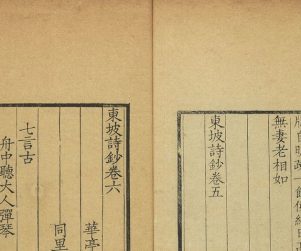 無妻老相如
東坡詩鈔卷五
東坡詩鈔卷六
華亭
同里
七言古
舟中聽大人彈琴